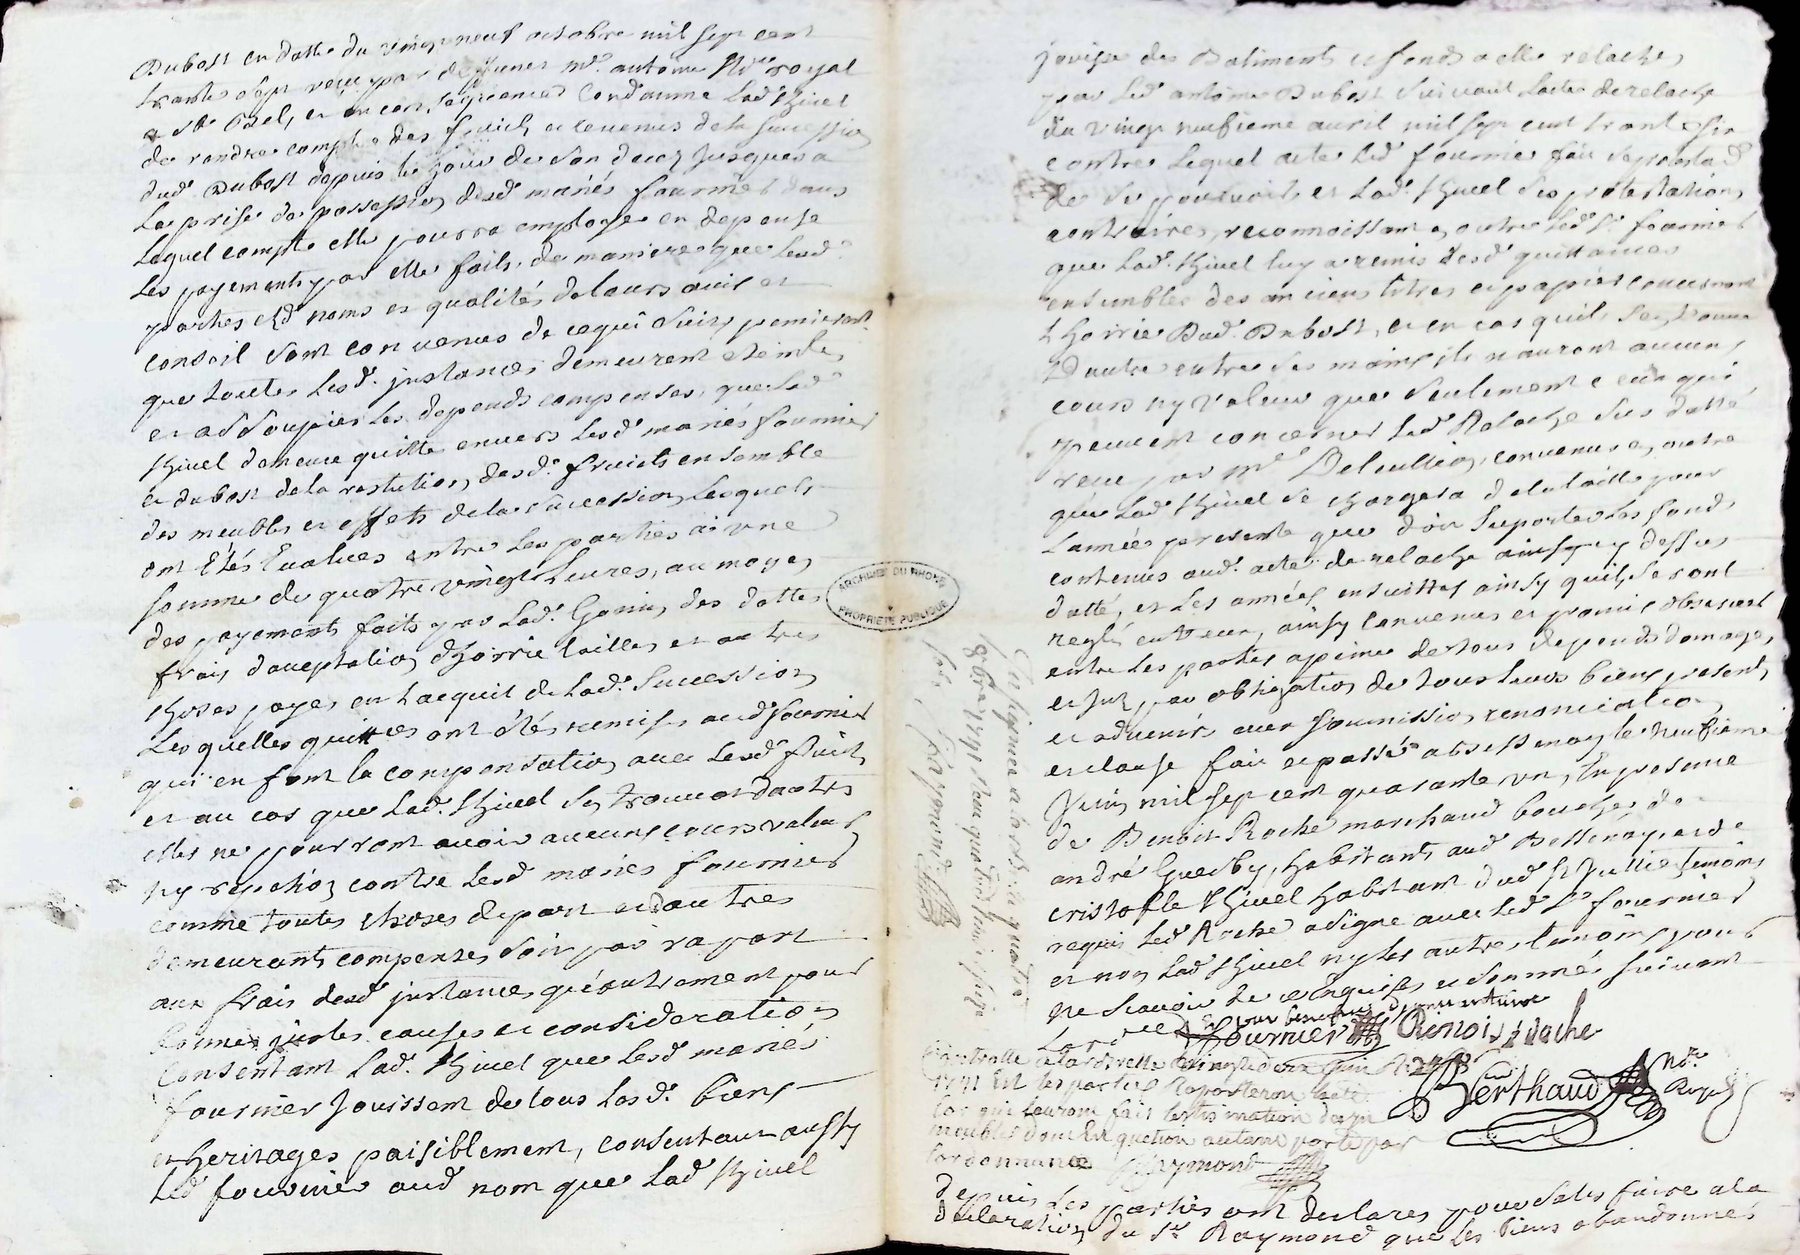 Dubost en datte du vingt neuf octobre mil sept cent
trante sept reçu par deffunct me. antoine Nre. royal
a st. Bel, et en consequences Condamne Lad. Thivel
de randre compte des fruicts et revenus de la succession
dud. Dubost depuis le jour de son deces jusques a
La prise de possession desd. mariés fournier dans
Lequel compte elle pourra employer en depense
Les payements par elle faits. de maniere que lesd.
parties esd. noms et qualités de leurs avis et
conseil sont convenus de ce qui suit, premierent.
que toutes lesd. jnstances demeurent eteintes
et assoupies les depends compensés, que lad.
Thivel demeure quitte envers lesd. mariés fournier
et dubost de la restitution desd. fruicts ensemble
des meubles et effets de la succession, lesquels
ont étés Evalués entre les parties a une
somme de quatre vingt Livres, au moyen
des payements faits par lad. des dattes
frais d'acceptation d'hoirrie tailles et autres
choses payes en l'acquit de lad. succession
Lesquelles quittces ont étés remises aud. fournier
qui en font la compensation avec lesd. fruicts
et au cas que lad. Thivel sen trouvat dautres
elles ne pourront avoir aucuns cours valeur
ny repetition contre lesd. mariés fournier
comme toutes choses de part et dautres
demeurants compensés soit par raport
aux frais desd. jnstances qu'autrement pour
bonnes justes causes et considerations
Consentant lad. Thivel que lesd. mariés
fournier jouissent de tous lesd. biens
et heritages paisiblement, consentant aussy
led. fournier aud. nom que lad. Thivel
jouisse des Batiments et fonds a elle relachés
par led. antoine Dubost suivant lacte de relache
du vingt neufieme avril mil sept cent trante six
contre lequel acte led. fournier fait
de se pourvoir et lad. Thivel ses protestations
contraires, reconnoissant en outre led. sr. fournier
que lad. Thivel luy a remis lesd. quittances
ensembles des anciens titres et papiers concernant
L'hoirrie dud. Dubost, et en cas quil sen trouva
d'autres entre ses mains ils nauront aucuns
cours ny valeur que seulement ceux qui
peuvent concerner led. Relache sus datté
receu par me. convenus en outre
que lad. Thivel se chargera de la taille pour
Lannée presente que doit suporter les fonds
contenus aud. acte de relache ainsy cy dessus
datté, et les années ensuittes ainsy quils seront
reglés entreux, ainsy convenus et promis observer
entre les parties a peine de tous depends domages
et jnt. par obligation de tous leurs biens presents
et advenir avec soumission renonciation
et clause fait et passé a Bessenay le neufieme
Juin mil sept cent quarante un, En presence
de Benoit Roche marchand boucher, de
andré Guerby, habitants aud. Bessenay et de
cristofle Thivel habitant dud. st Jullie temoins
requis led. Roche a signé avec led. sr. fournier
et non lad. Thivel ny les autres temoins pour
ne scavoir de ce enquis et sommés suivant
Lord.ce
Fournier Benoist roche
Berthaud Nre. Royal
Controllé a larbrelle le Juin
1741 Et les parties Raporteron lacte
lors qui lauront fait lestimation desd.
meubles dont Est question autant porté par
lordonnance Raymond
Depuis les parties ont declares pour satisfaire a la
declaration du sr. Raymond que les biens abandonnés
ARCHIVES DU RHONE
PROPRIÉTÉ PUBLIQUE